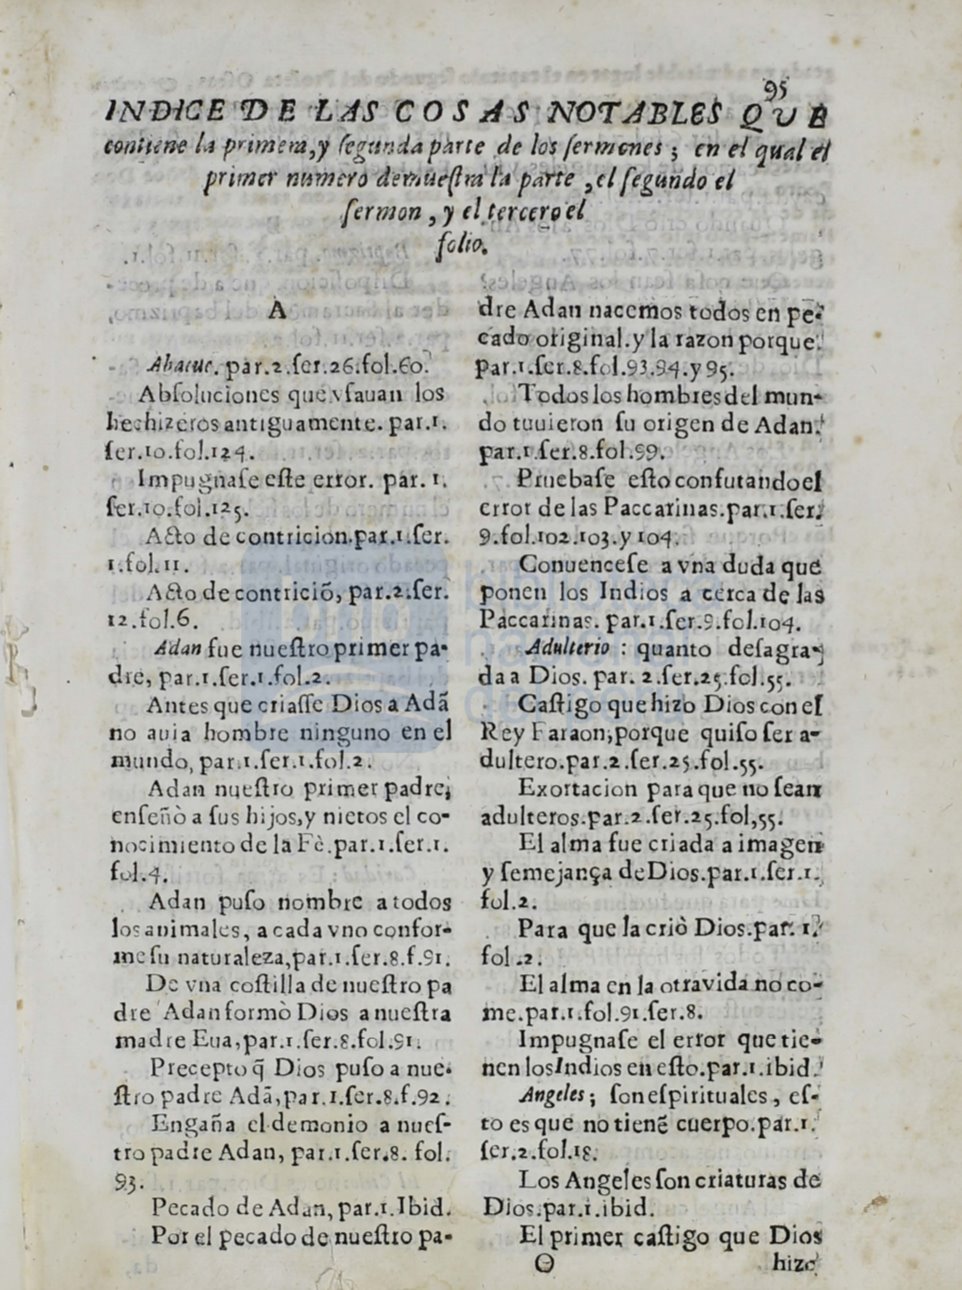 95
INDICE DE LAS COSAS NOTABLES QVE
contiene la primera,y ſegunda parte de los ſermones ; en el qual el
primer numero demueſtra la parte ,el ſegundo el
ſermon , y el tercero el
folio.
A
Abacuc. par.2.ſer.26.fol.60.
Abſoluciones que vſauan los
hechizeros antiguamente. par.1.
ſer.10.fol.124.
Impugnaſe eſte error. par. 1.
ſer.10.fol.125.
Acto de contricion.par.1.ſer.
1.fol.11.
Acto de contriciõ, par.2.ſer.
12.fol.6.
Adan fue nueſtro primer pa-
dre, par.1.ſer.1.fol.2.
Antes que criaſſe Dios a Adã
no auia hombre ninguno en el
mundo, par.1.ſer.1.fol.2.
Adan nueſtro primer padre,
enſeñò a ſus hijos,y nietos el co-
nocimiento de la Fè.par.1.ſer.1.
fol.4.
Adan puſo nombre a todos
los animales, a cada vno confor-
me ſu naturaleza,par.1.ſer.8.f.91.
De vna coſtilla de nueſtro pa
dre Adan formò Dios a nueſtra
madre Eua,par.1.ſer.8.fol.91.
Precepto q̃ Dios puſo a nue-
ſtro padre Adã,par.1.ſer.8.f.92.
Engaña el demonio a nueſ-
tro padre Adan, par.1.ſer.8. fol.
93.
Pecado de Adan,par.1.Ibid.
Por el pecado de nueſtro pa-
dre Adan nacemos todos en pe-
cado original.y la razon porque.
par.1.ſer.8.fol.93.94.y 95.
Todos los hombres del mun-
do tuuieron ſu origen de Adan.
par.1.ſer.8.fol.99.
Pruebaſe eſto confutando el
error de las Paccarinas.par.1.ſer.
9.fol.102.103.y 104.
Conuenceſe a vna duda que
ponen los Indios a cerca de las
Paccarinas. par.1.ſer.9.fol.104.
Adulterio : quanto deſagra-
da a Dios. par. 2.ſer.25.fol.55.
Caſtigo que hizo Dios con el
Rey Faraon,porque quiſo ſer a-
dultero.par.2.ſer.25.fol.55.
Exortacion para que no ſean
adulteros.par.2.ſer.25.fol,55.
El alma fue criada a imagen
y ſemejança de Dios.par.1.ſer.1.
fol.2.
Para que la criò Dios.par. 1.
fol .2.
El alma en la otra vida no co-
me.par.1.fol.91.ſer.8.
Impugnaſe el error que tie-
nen los Indios en eſto.par.1.ibid.
Angeles ; ſon eſpirituales , eſ-
to es que no tienẽ cuerpo.par.1.
ſer.2.fol.18.
Los Angeles ſon criaturas de
Dios.par.1.ibid.
El primer caſtigo que Dios
O
hizo